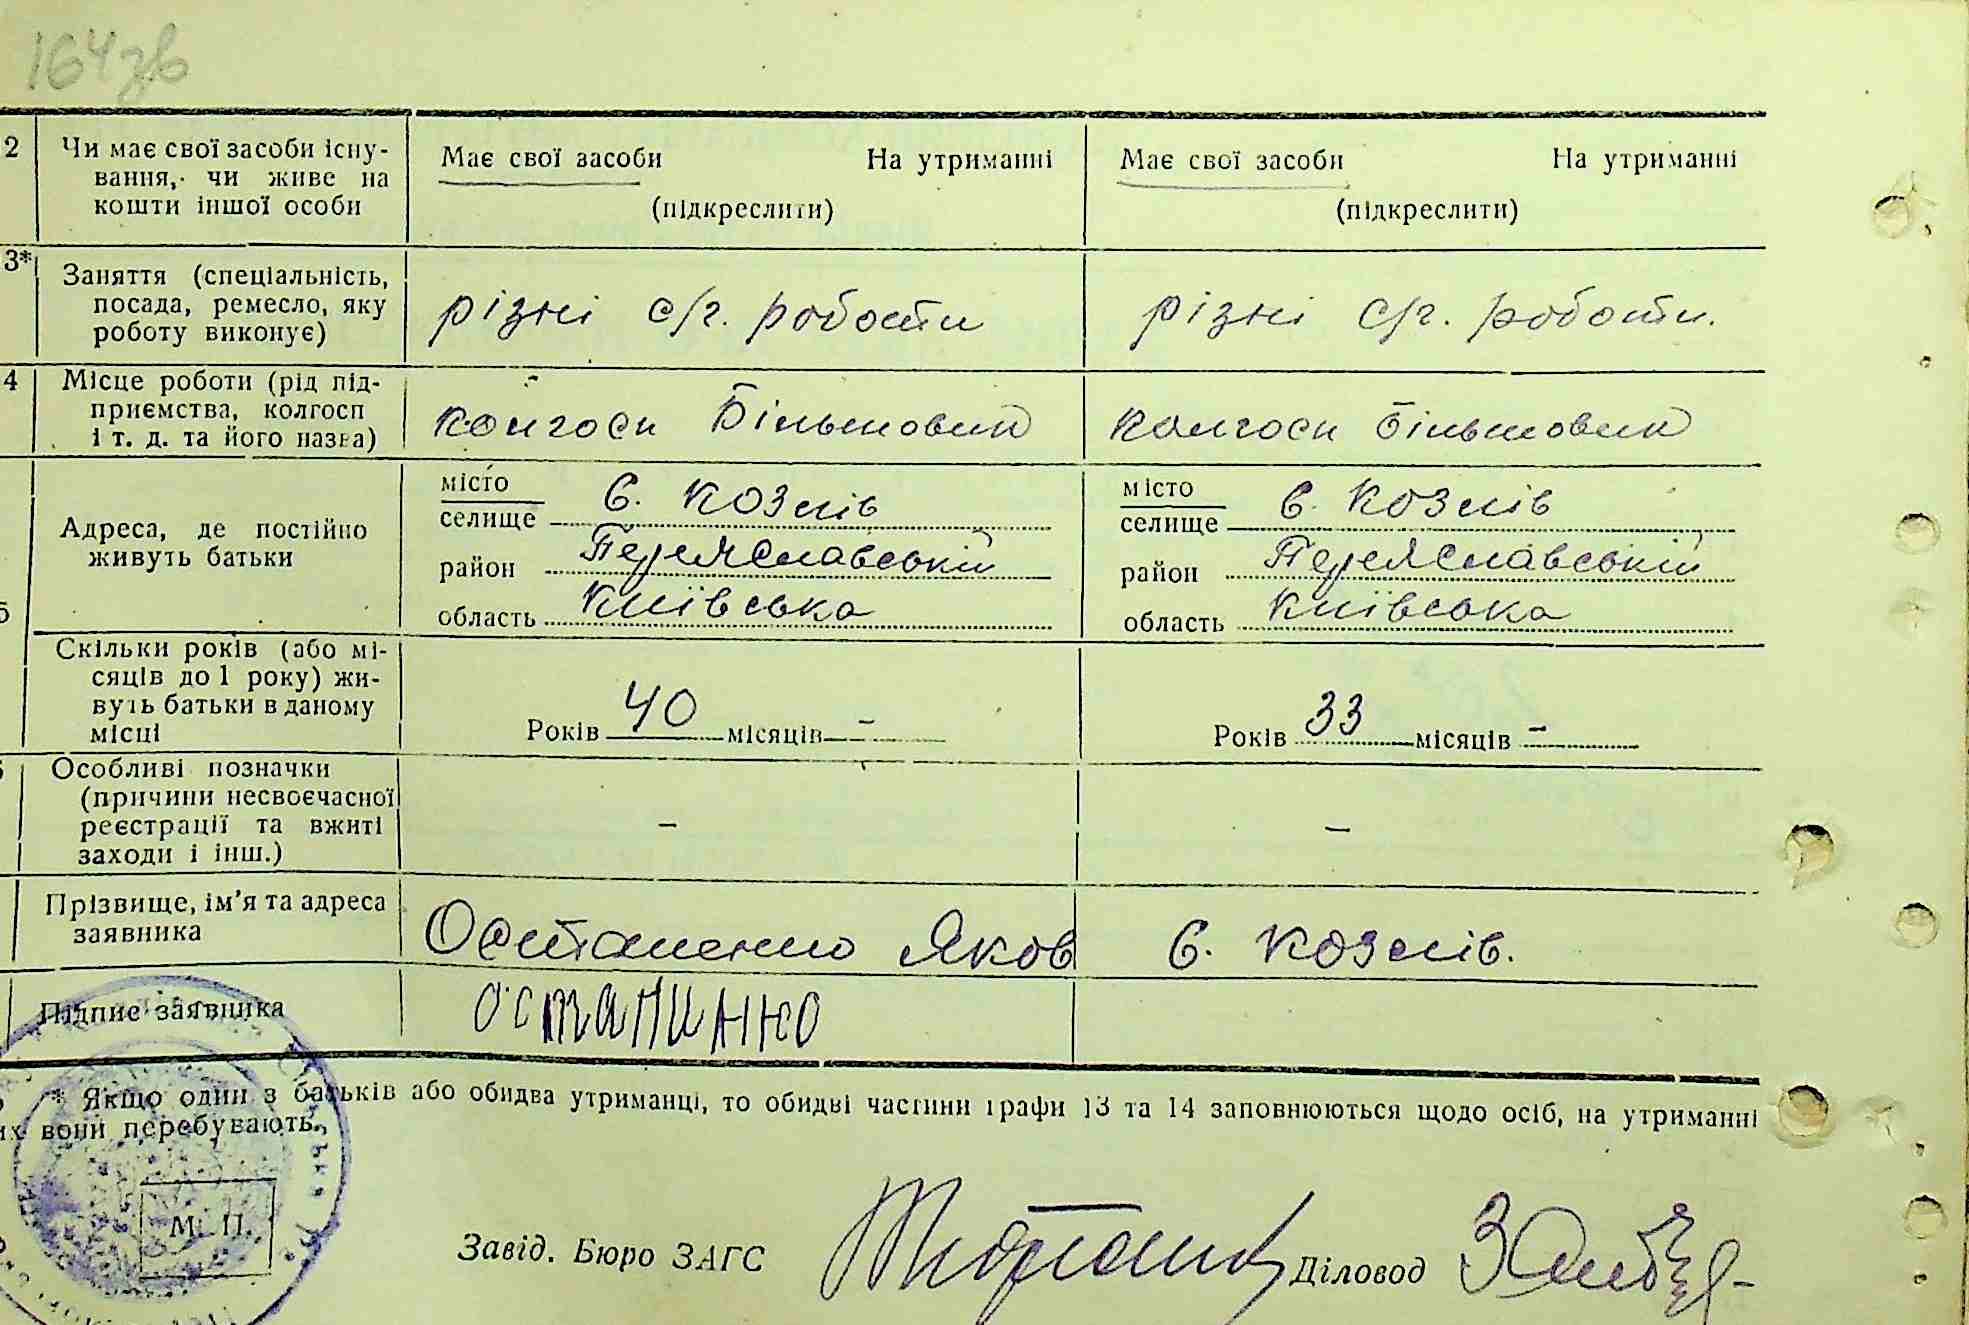 164зв
2 Чи має свої засоби існу-
вання, чи живе на
кошти іншої особи
Має свої засоби На утриманні
(підкреслити)
Має свої засоби На утриманні
(підкреслити)
3* Заняття (спеціальність,
посада, ремесло, яку
роботу виконує)
різні с/г. роботи
різні с/г. роботи.
4 Місце роботи (рід під-
приємства, колгосп
і т. д. та його назва)
колгосп Більшовик
колгосп Більшовик
5 Адреса, де постійно
живуть батьки
місто
селище с. Козлів
район Переяславський
область Київська
місто
селище с. Козлів
район Переяславський
область Київська
Скільки років (або мі-
сяців до 1 року) жи-
вуть батьки в даному
місці
Років 40 місяців –
Років 33 місяців –
Особливі позначки
(причини несвоєчасної
реєстрації та вжиті
заходи і інш.)
–
–
Прізвище, ім'я та адреса
заявника
Остапенко Яков с. Козлів.
Підпис заявника
* Якщо один з батьків або обидва утриманці, то обидві частини графи 13 та 14 заповнюються щодо осіб, на утриманні
их вони перебувають.
М. П.
Завід. Бюро ЗАГС
Діловод